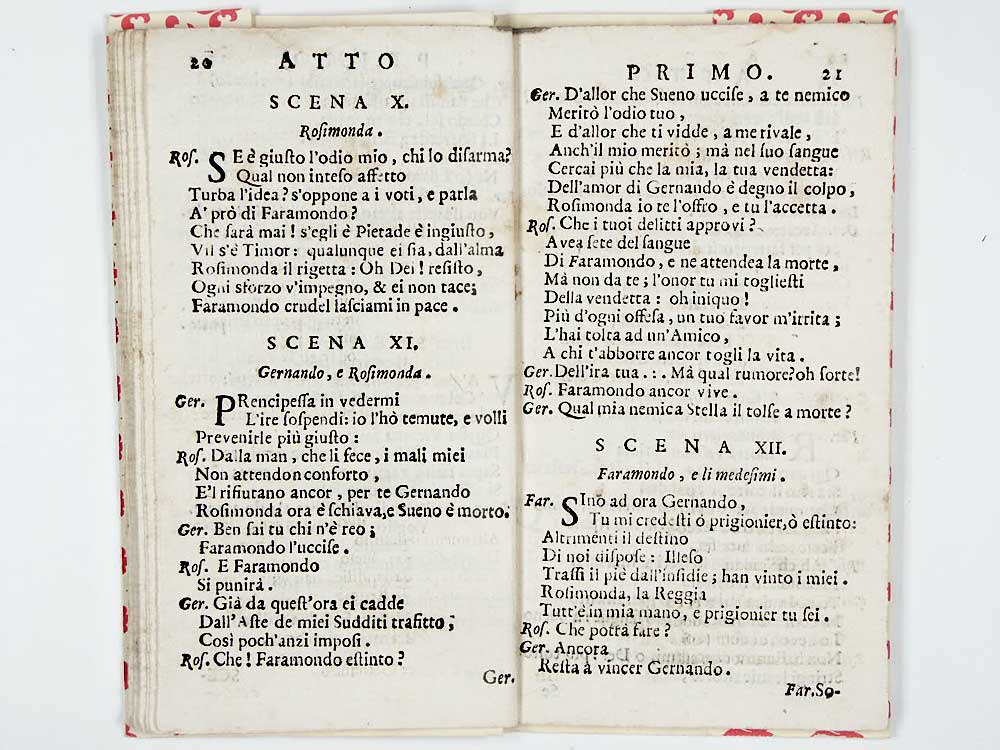 20 ATTO
SCENA X.
Rosimonda.
Ros. SE è giusto l'odio mio, chi lo disarma?
Qual non inteso affetto
Turba l'idea? s'oppone a i voti, e parla
A' prò di Faramondo?
Che sarà mai! s'egli è Pietade è ingiusto,
Vil s'è Timor: qualunque ei sia, dall'alma
Rosimonda il rigetta: Oh Dei! resisto,
Ogni sforzo v'impegno, & ei non tace;
Faramondo crudel lasciami in pace.
SCENA XI.
Gernando, e Rosimonda.
Ger. PRencipessa in vedermi
L'ire sospendi: io l'hò temute, e volli
Prevenirle più giusto:
Ros. Dalla man, che li fece, i mali miei
Non attendon conforto,
E'l rifiutano ancor, per te Gernando
Rosimonda ora è schiava, e Sueno è morto.
Ger. Ben sai tu chi n'è reo;
Faramondo l'uccise.
Ros. E Faramondo
Si punirà.
Ger. Già da quest'ora ei cadde
Dall'Aste de miei Sudditi trafitto;
Così poch'anzi imposi.
Ros. Che! Faramondo estinto?
Ger.
PRIMO. 21
Ger. D'allor che Sueno uccise, a te nemico
Meritò l'odio tuo,
E d'allor che ti vidde, a me rivale,
Anch'il mio meritò; mà nel suo sangue
Cercai più che la mia, la tua vendetta:
Dell'amor di Gernando è degno il colpo,
Rosimonda io te l'offro, e tu l'accetta.
Ros. Che i tuoi delitti approvi?
Avea sete del sangue
Di Faramondo, e ne attendea la morte,
Mà non da te; l'onor tu mi togliesti
Della vendetta: oh iniquo!
Più d'ogni offesa, un tuo favor m'irrita;
L'hai tolta ad un'Amico,
A chi t'abborre ancor togli la vita.
Ger. Dell'ira tua . : . Mà qual rumore? oh sorte!
Ros. Faramondo ancor vive.
Ger. Qual mia nemica Stella il tolse a morte?
SCENA XII.
Faramondo, e li medesimi.
Far. SIno ad ora Gernando,
Tu mi credesti ò prigionier, ò estinto:
Altrimenti il destino
Di noi dispose: Illeso
Trassi il piè dall'insidie; han vinto i miei.
Rosimonda, la Reggia
Tutt'è in mia mano, e prigionier tu sei.
Ros. Che potrà fare?
Ger. Ancora
Resta à vincer Gernando.
Far. So-